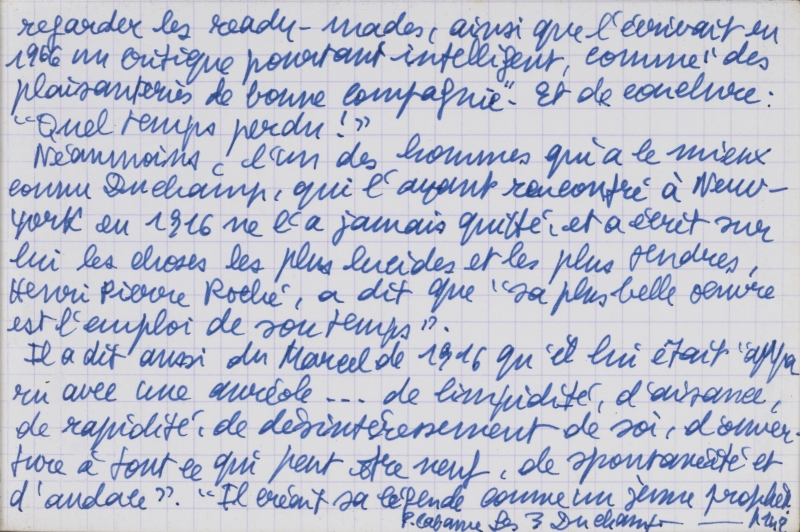 regarder les ready-mades, ainsi que l'écrivait en
1966 un critique pourtant intelligent, comme "des
plaisanteries de bonne compagnie". Et de conclure :
"Quel temps perdu !"
Néanmoins, l'un des hommes qui a le mieux
connu Duchamp, qui l'ayant rencontré à New-
york en 1916 ne l'a jamais quitté, et a écrit sur
lui les choses les plus lucides et les plus tendres,
Henri Pierre Roché, a dit que "sa plus belle oeuvre
est l'emploi de son temps".
Il a dit aussi du Marcel de 1916 qu'il lui était "appa
ru avec une auréole ... de limpidité, d'aisance,
de rapidité, de désintéressement de soi, d'ouver-
ture à tout ce qui peut être neuf, de spontanéité et
d'audace". "Il créait sa légende comme un jeune prophète
P. Cabanne Les 3 Duchamp —